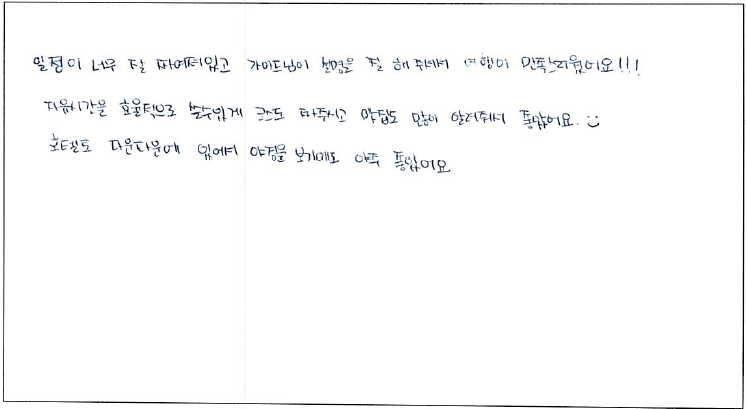 일정이 너무 잘 짜여져있고 가이드님이 설명을 잘 해주셔서 여행이 만족스러웠어요!!!
자유시간을 효율적으로 쓸수있게 코스도 짜주시고 맛집도 많이 알려줘서 좋았어요. :)
호텔도 다운타운에 있어서 야경을 보기에도 아주 좋았어요